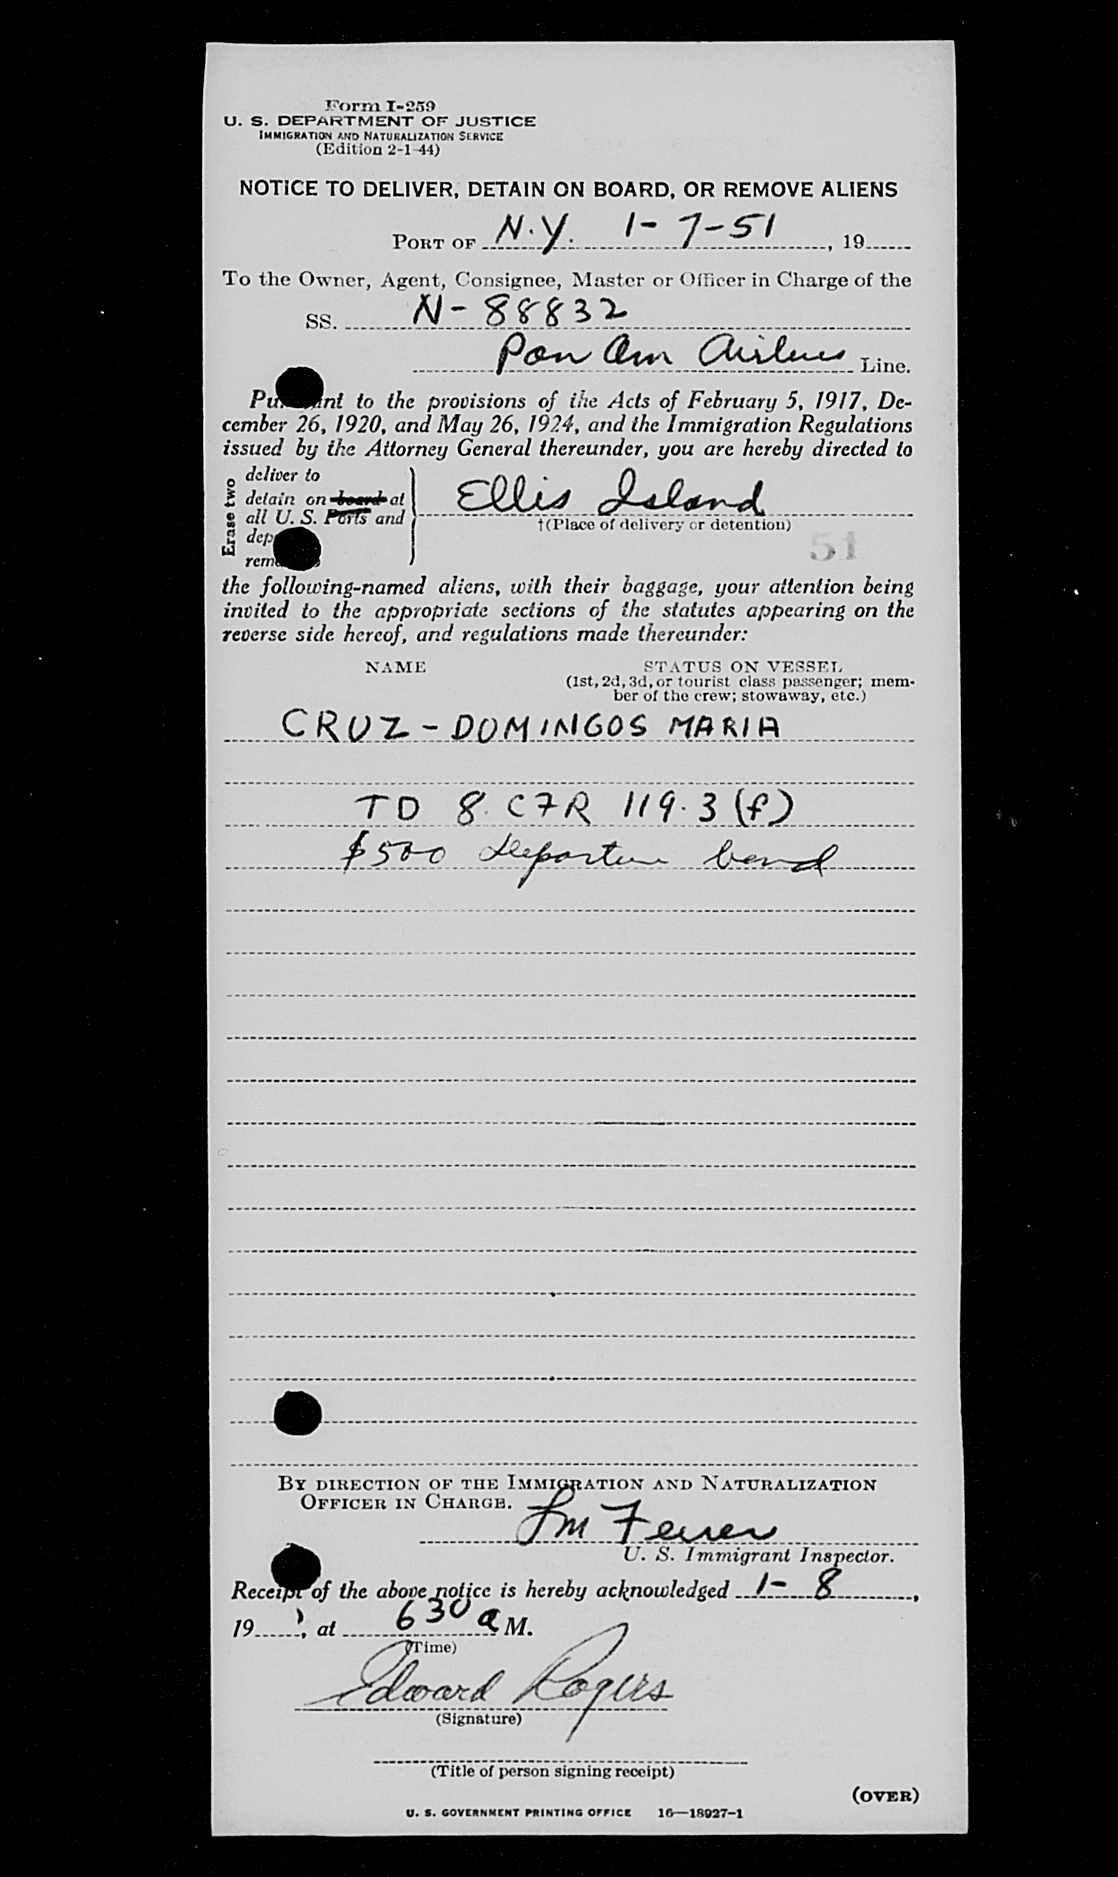 Form I-259
U. S. DEPARTMENT OF JUSTICE
IMMIGRATION AND NATURALIZATION SERVICE
(Edition 2-1-44)
NOTICE TO DELIVER, DETAIN ON BOARD, OR REMOVE ALIENS
PORT OF N.Y. 1-7-51, 19
To the Owner, Agent, Consignee, Master or Officer in Charge of the
SS. N-88832
Pan Am Airlines Line.
to the provisions of the Acts of February 5, 1917, De-
cember 26, 1920, and May 26, 1924, and the Immigration Regulations
issued by the Attorney General thereunder, you are hereby directed to
Erase two
deliver to
detain on board at
all U. S. Ports and
Ellis Island
†(Place of delivery or detention)
51
the following-named aliens, with their baggage, your attention being
invited to the appropriate sections of the statutes appearing on the
reverse side hereof, and regulations made thereunder:
NAME STATUS ON VESSEL
(1st, 2d, 3d, or tourist class passenger; mem-
ber of the crew; stowaway, etc.)
CRUZ - DOMINGOS MARIA
TD 8 CFR 119.3 (f)
$500 departure bond
BY DIRECTION OF THE IMMIGRATION AND NATURALIZATION
OFFICER IN CHARGE.
U. S. Immigrant Inspector.
Receipt of the above notice is hereby acknowledged 1-8,
19, at 630 a M.
(Time)
Edward Rogers
(Signature)
(Title of person signing receipt)
(OVER)
U. S. GOVERNMENT PRINTING OFFICE 16—18927-1